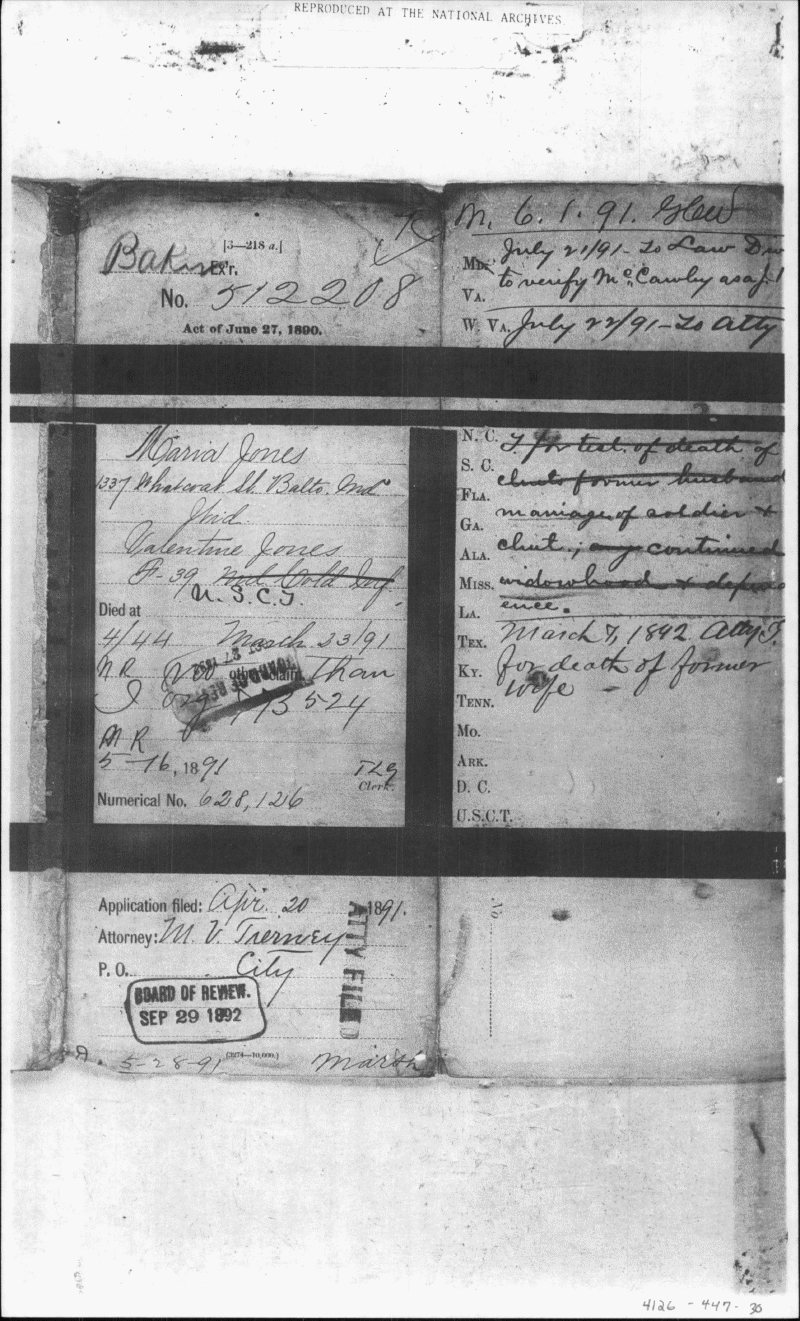 REPRODUCED AT THE NATIONAL ARCHIVES
[3—218 a.]
Baker Ex'r.
No. 512208
Act of June 27, 1890.
Maria Jones
1337 Whatcoat St. Balto. Md.
Wid.
Valentine Jones
F-39 U.S.C.T.
Died at
4/44 March 23/91
N R No other claim than
I 773524
M R
5-16, 1891 TLG
Clerk.
Numerical No. 628,126
Application filed: Apr. 20 1891.
Attorney: M. V. Tierney
P. O. City
ATTY FILED
BOARD OF REVIEW.
SEP 29 1892
5-28-91 (3274—10,000.) Marsh
M. 6. 1. 91.
July 21/91 - To Law Div
Md.
to verify McCawley as
Va.
W. Va. July 22/91 - To Atty
N. C. T for test. of death of
S. C.
clmt's former husband
Fla.
marriage of soldier &
Ga.
Ala. clmt.; any continued
Miss. widowhood & depend
La. ence.
Tex. March 7, 1892 Atty T.
Ky. for death of former
wife -
Tenn.
Mo.
Ark.
D. C.
U.S.C.T.
No.
4126 - 447 - 30